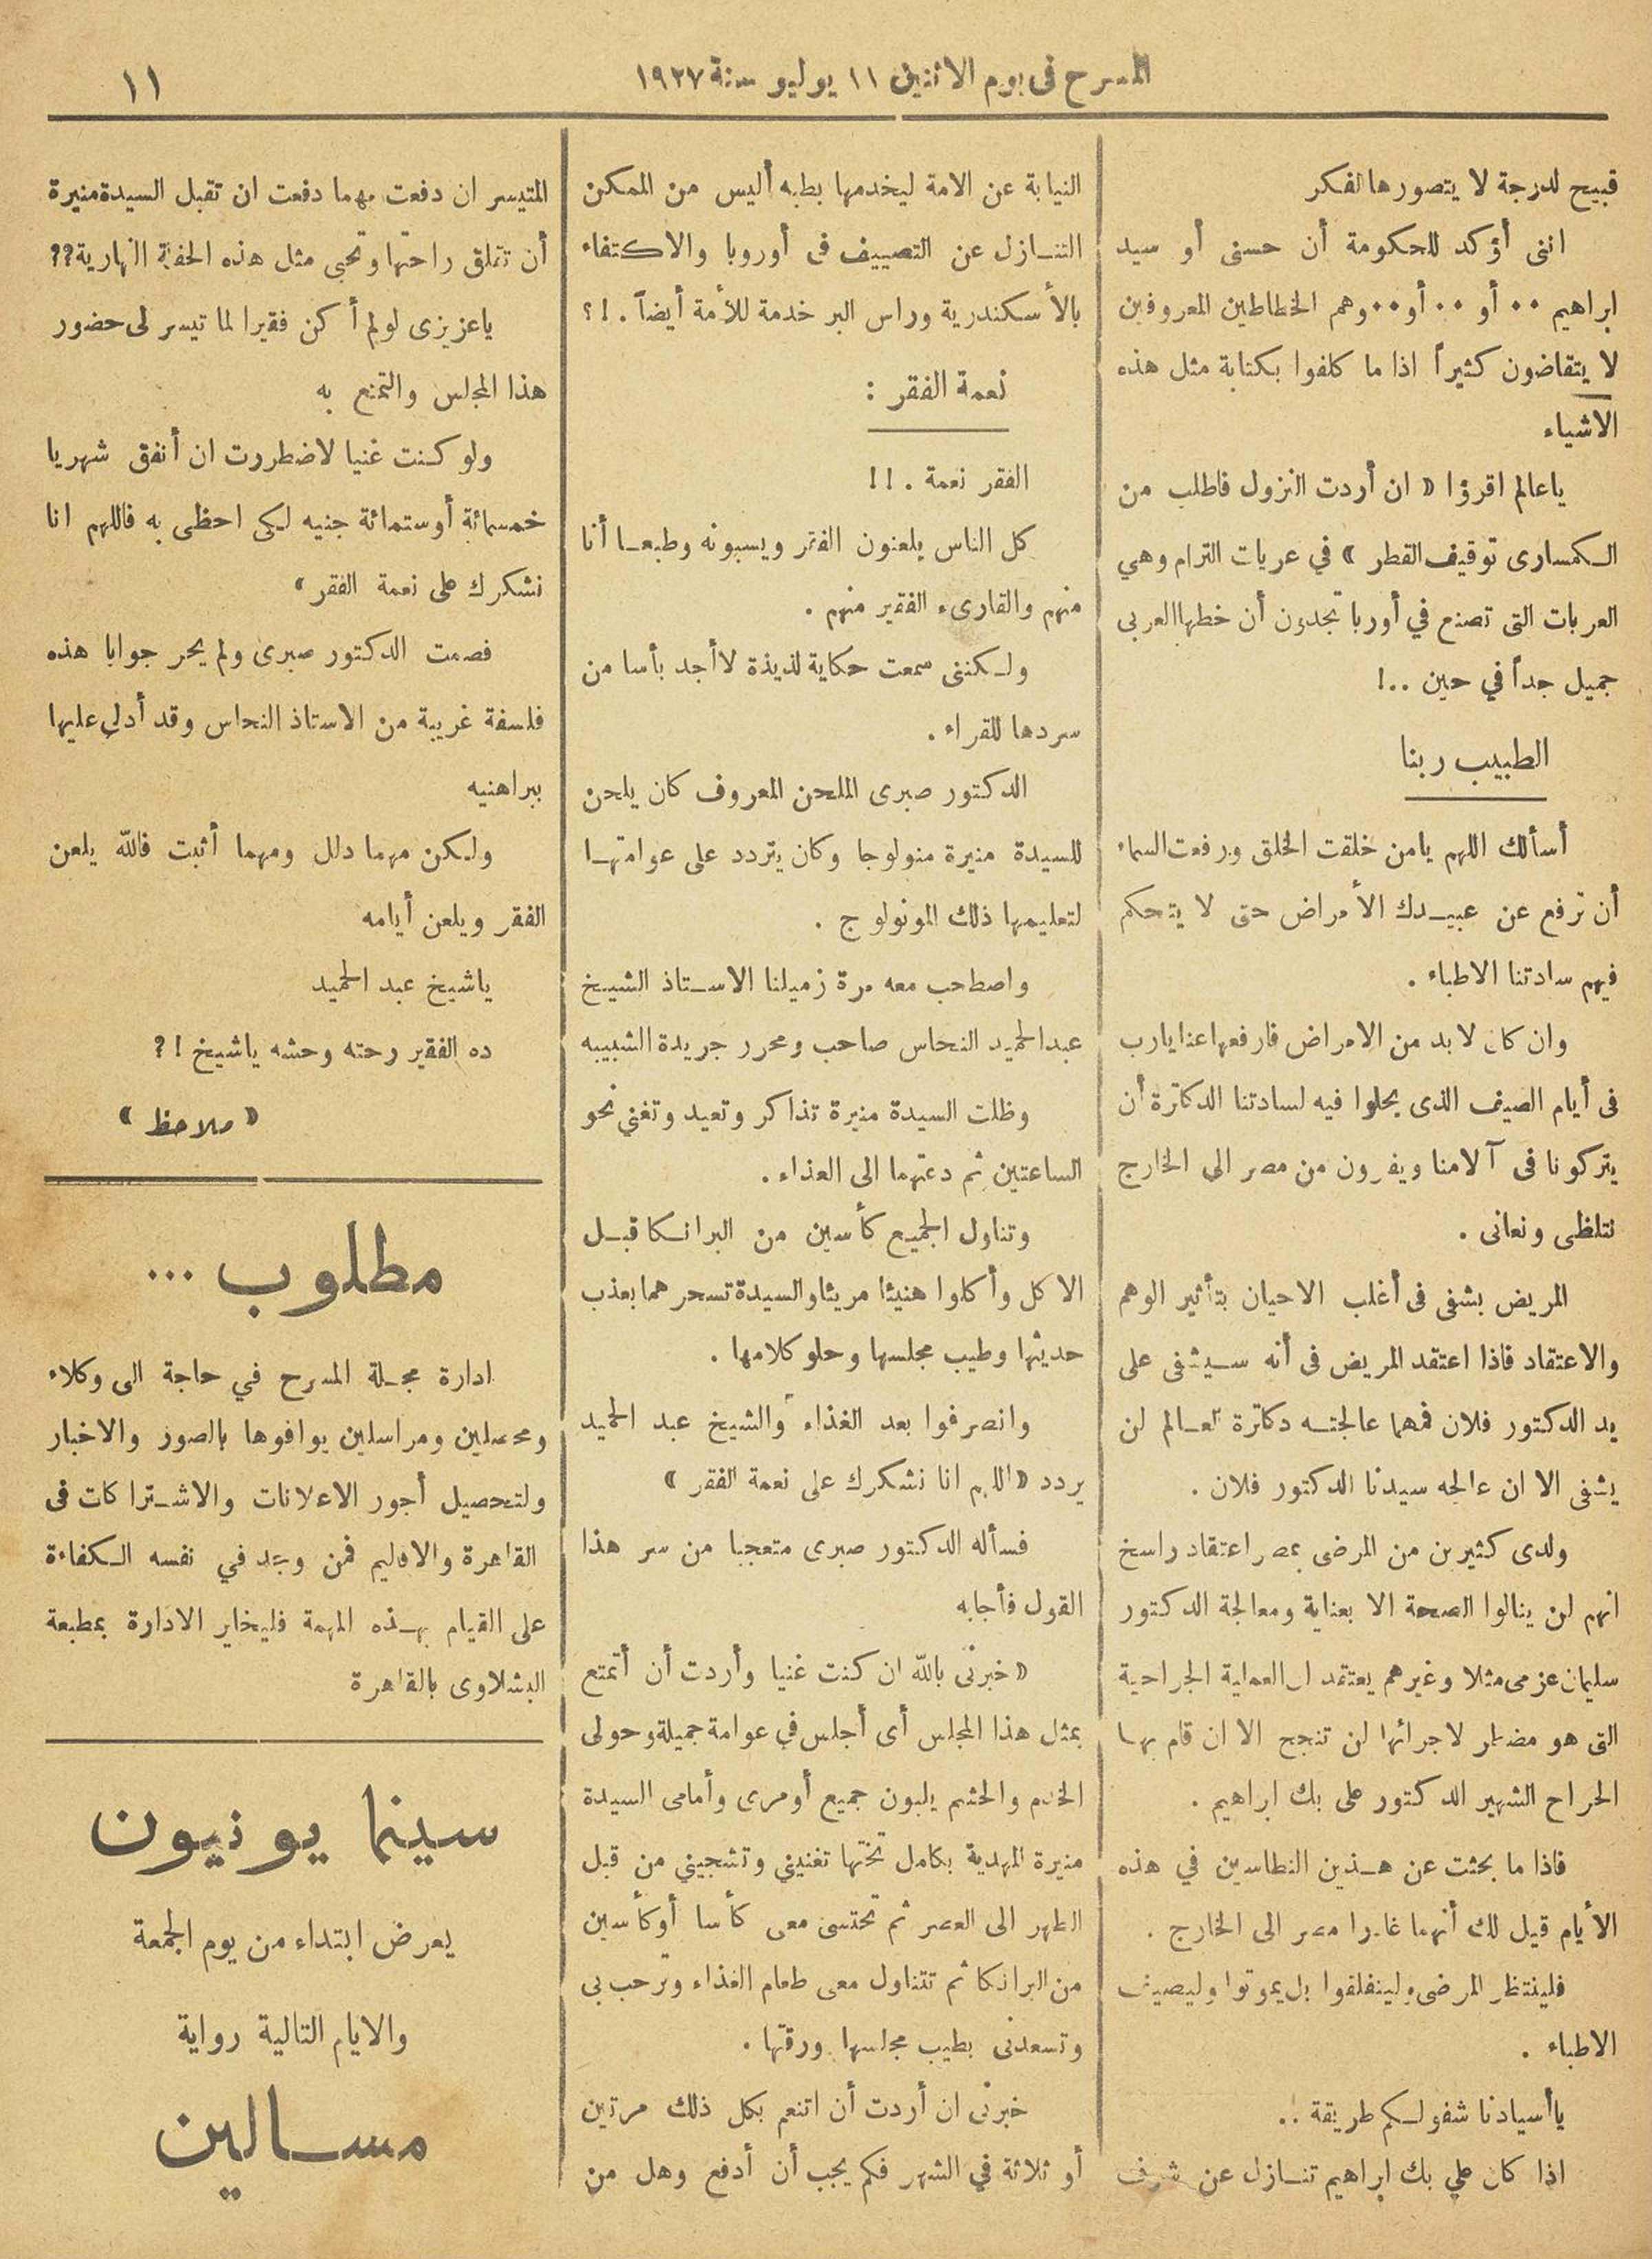 المسرح فى يوم الاثنين ١١ يوليو سنة ١٩٢٧
١١
قبيح لدرجة لا يتصورها الفكر
اننى أؤكد للحكومة أن حسنى أو سيد
ابراهيم ٠٠ أو ٠٠ أو ٠٠ وهم الخطاطين المعروفين
لا يتقاضون كثيراً اذا ما كلفوا بكتابة مثل هذه
الاشياء
ياعالم اقرؤا « ان أردت النزول فاطلب من
الكمسارى توقيف القطر » في عربات الترام وهي
العربات التى تصنع في أوربا تجدون أن خطها العربى
جميل جداً في حين ..!
الطبيب ربنا
أسألك اللهم يامن خلقت الخلق ورفعت السماء
أن ترفع عن عبيدك الأمراض حتى لا يتحكم
فيهم سادتنا الاطباء .
وان كان لابد من الامراض فارفعها عنا يارب
فى أيام الصيف الذى يحلوا فيه لسادتنا الدكاترة أن
يتركونا فى آلامنا ويفرون من مصر الى الخارج
نتلظى ونعانى .
المريض يشفى فى أغلب الاحيان بتأثير الوهم
والاعتقاد فاذا اعتقد المريض فى أنه سيشفى على
يد الدكتور فلان فمهما عالجته دكاترة العالم لن
يشفى الا ان عالجه سيدنا الدكتور فلان .
ولدى كثيرين من المرضى بمصر اعتقاد راسخ
انهم لن ينالوا الصحة الا بعناية ومعالجة الدكتور
سليمان عزمى مثلا وغيرهم يعتقد ان العملية الجراحية
التى هو مضطر لاجرائها لن تنجح الا ان قام بها
الجراح الشهير الدكتور على بك ابراهيم .
فاذا ما بحثت عن هذين النطاسين في هذه
الأيام قيل لك أنهما غادرا مصر الى الخارج .
فلينتظر المرضى ولينفلقوا بل يموتوا وليصيف
الاطباء .
ياأسيادنا شفولكم طريقة ..
اذا كان على بك ابراهيم تنازل عن شرف
النيابة عن الامة ليخدمها بطبه أليس من الممكن
التنازل عن التصييف فى أوروبا والاكتفاء
بالأسكندرية وراس البر خدمة للأمة أيضاً . !؟
نعمة الفقر :
الفقر نعمة . !!
كل الناس يلعنون الفقر ويسبونه وطبعا أنا
منهم والقارىء الفقير منهم .
ولكننى سمعت حكاية لذيذة لاأجد بأسا من
سردها للقراء .
الدكتور صبرى الملحن المعروف كان يلحن
للسيدة منيرة منولوجا وكان يتردد على عوامتها
لتعليمها ذلك المونولوج .
واصطحب معه مرة زميلنا الاستاذ الشيخ
عبدالحميد النحاس صاحب ومحرر جريدة الشبيبه
وظلت السيدة منيرة تذاكر وتعيد وتغني نحو
الساعتين ثم دعتهما الى الغذاء .
وتناول الجميع كأسين من البرانكا قبل
الاكل وأكلوا هنيئا مريئا والسيدة تسحرهما بعذب
حديثها وطيب مجلسها وحلو كلامها .
وانصرفوا بعد الغذاء والشيخ عبد الحميد
يردد « اللهم انا نشكرك على نعمة الفقر »
فسأله الدكتور صبرى متعجبا من سر هذا
القول فأجابه
« خبرنى بالله ان كنت غنيا وأردت أن أتمتع
بمثل هذا المجلس أى أجلس في عوامة جميلة وحولى
الخدم والحشم يلبون جميع أومرى وأمامى السيدة
منيرة المهدية بكامل تختها تغنيني وتشجيني من قبل
الظهر الى العصر ثم تحتسى معى كأسا أوكأسين
من البرانكا ثم تتناول معى طعام الغذاء وترحب بى
وتسعدنى بطيب مجلسها ورقتها .
خبرنى ان أردت أن اتنعم بكل ذلك مرتين
أو ثلاثة في الشهر فكم يجب أن أدفع وهل من
المتيسر ان دفعت مهما دفعت ان تقبل السيدة منيرة
أن تقلق راحتها وتحيي مثل هذه الحفلة النهارية؟؟
ياعزيزى لو لم أكن فقيرا لما تيسر لى حضور
هذا المجلس والتمتع به
ولو كنت غنيا لاضطررت ان أنفق شهريا
خمسمائة أوستمائة جنيه لكى احظى به فاللهم انا
نشكرك على نعمة الفقر »
فصمت الدكتور صبرى ولم يحر جوابا هذه
فلسفة غريبة من الاستاذ النحاس وقد أدلى عليها
ببراهنيه
ولكن مهما دلل ومهما أثبت فالله يلعن
الفقر ويلعن أيامه
ياشيخ عبد الحميد
ده الفقير رحته وحشه ياشيخ !؟
« ملاحظ »
مطلوب ...
ادارة مجلة المسرح في حاجة الى وكلاء
ومحصلين ومراسلين يوافوها بالصور والاخبار
ولتحصيل أجور الاعلانات والاشتراكات فى
القاهرة والاقاليم فمن وجد في نفسه الكفاءة
على القيام بهذه المهمة فليخابر الادارة بمطبعة
البشلاوى بالقاهرة
سينما يونيون
يعرض ابتداء من يوم الجمعة
والايام التالية رواية
مسالين